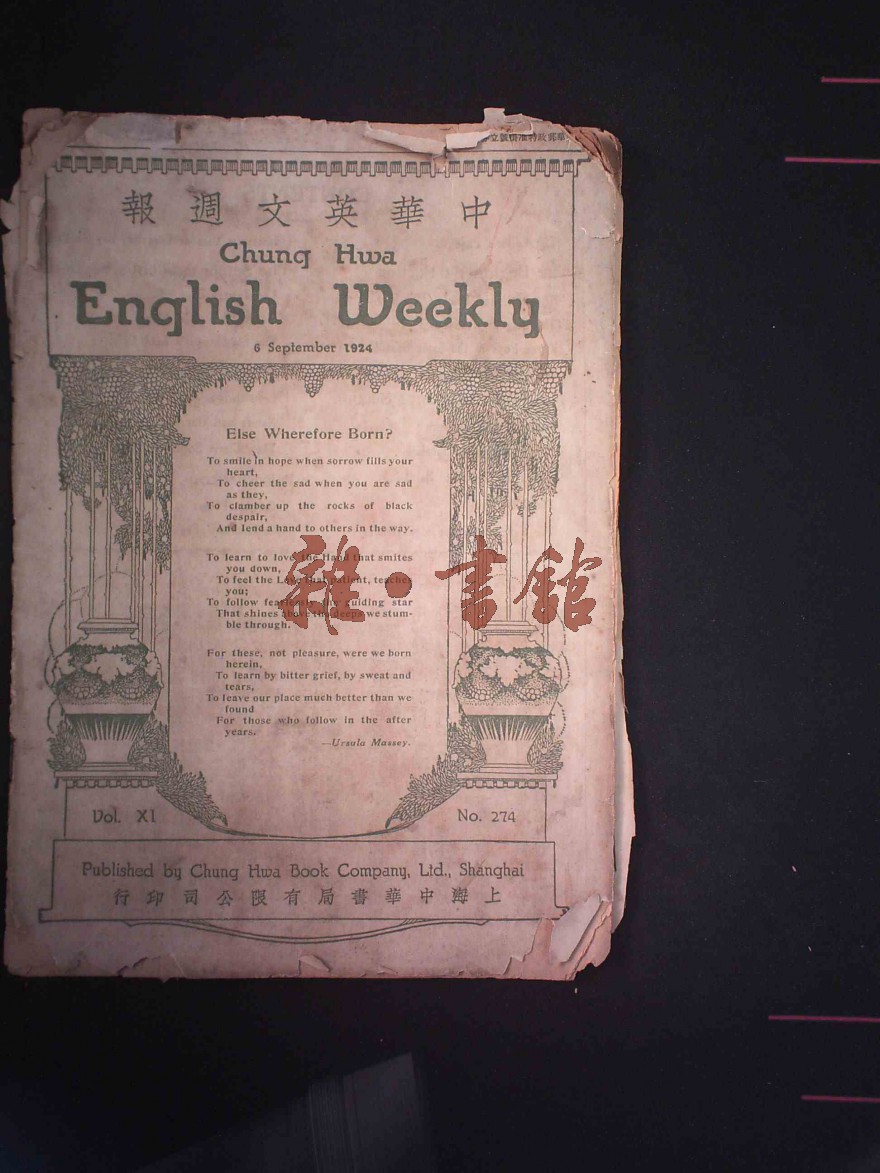 中華英文週報
Chung Hwa
English Weekly
6 September 1924
Else Wherefore Born?
To smile in hope when sorrow fills your
heart,
To cheer the sad when you are sad
as they,
To clamber up the rocks of black
despair,
And lend a hand to others in the way.
To learn to love the Hand that smites
you down,
To feel the Love that patient, teaches
you;
To follow fearlessly the guiding star
That shines above the deeps we stum-
ble through.
雜·書館
For these, not pleasure, were we born
herein,
To learn by bitter grief, by sweat and
tears,
To leave our place much better than we
found
For those who follow in the after
years.
—Ursula Massey.
Vol. XI
No. 274
Published by Chung Hwa Book Company, Ltd., Shanghai
上海中華書局有限公司印行